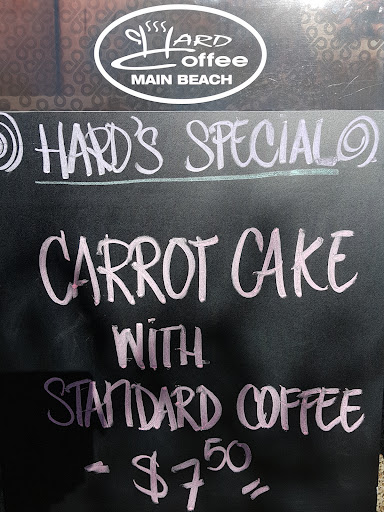 HARD
Coffee
MAIN BEACH
HARD'S SPECIAL
CARROT CAKE
WITH
STANDARD COFFEE
- $7.50 -